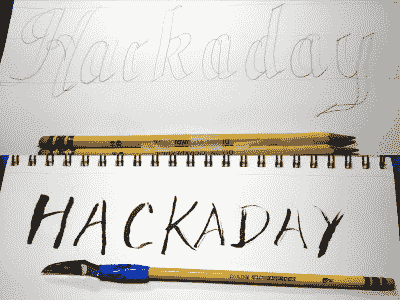 Hackaday
HACKADAY